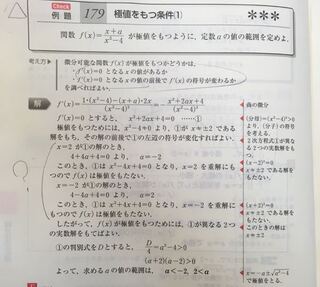 Check
例題 179 極値をもつ条件(1) ***
関数 f(x)=x+a/x²-4 が極値をもつように，定数aの値の範囲を定めよ．
考え方 微分可能な関数f(x)が極値をもつかどうかは，
・f'(x)=0 となるxの値があるか
・f'(x)=0 となるxの値の前後で f'(x) の符号が変わるか
を調べればよい．
解 f'(x)=1・(x²-4)-(x+a)・2x/(x²-4)²=-x²+2ax+4/(x²-4)²
f'(x)=0 とすると，x²+2ax+4=0 ……①
極値をもつためには，x²-4≠0 より，①が x≠±2 である解
をもち，その解の前後で①の左辺の符号が変化すればよい．
x=2 が①の解のとき，
4+4a+4=0 より，a=-2
このとき，①は x²-4x+4=0 となり，x=2 を重解にも
つので f(x) は極値をもたない．
x=-2 が①の解のとき，
4-4a+4=0 より，a=2
このとき，①は x²+4x+4=0 となり，x=-2 を重解に
もつので f(x) は極値をもたない．
したがって，f(x) が極値をもつためには，①が異なる2つ
の実数解をもてばよい．
①の判別式をDとすると，D/4=a²-4>0
(a+2)(a-2)>0
よって，求めるaの値の範囲は，a<-2，2<a
商の微分
(分母)=(x²-4)²>0
より，(分子)の符号を
考える．
2次方程式①が異な
る2つの実数解をも
つ．
(x-2)²=0
x≠±2 である解を
もたない．
(x+2)²=0
x≠±2 である解を
もたない．
このときの解は
x≠±2
x=-a±√a²-4
で極値をとる．